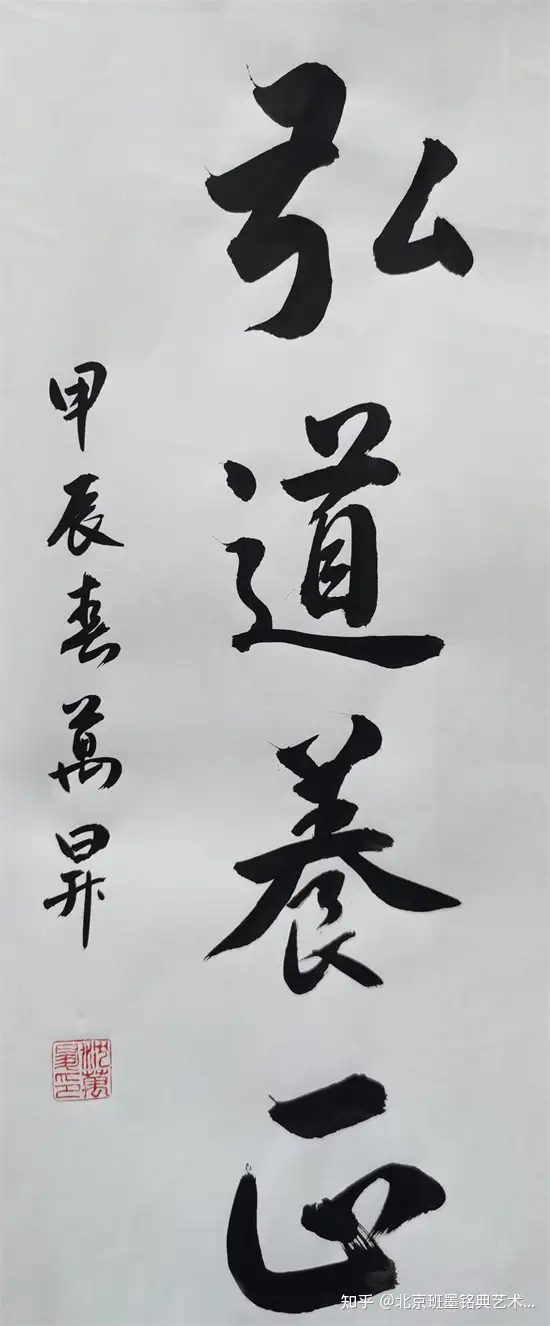 弘道養正
甲辰春萬昇
沈萬昇印
知乎 @北京班墨铭典艺术...